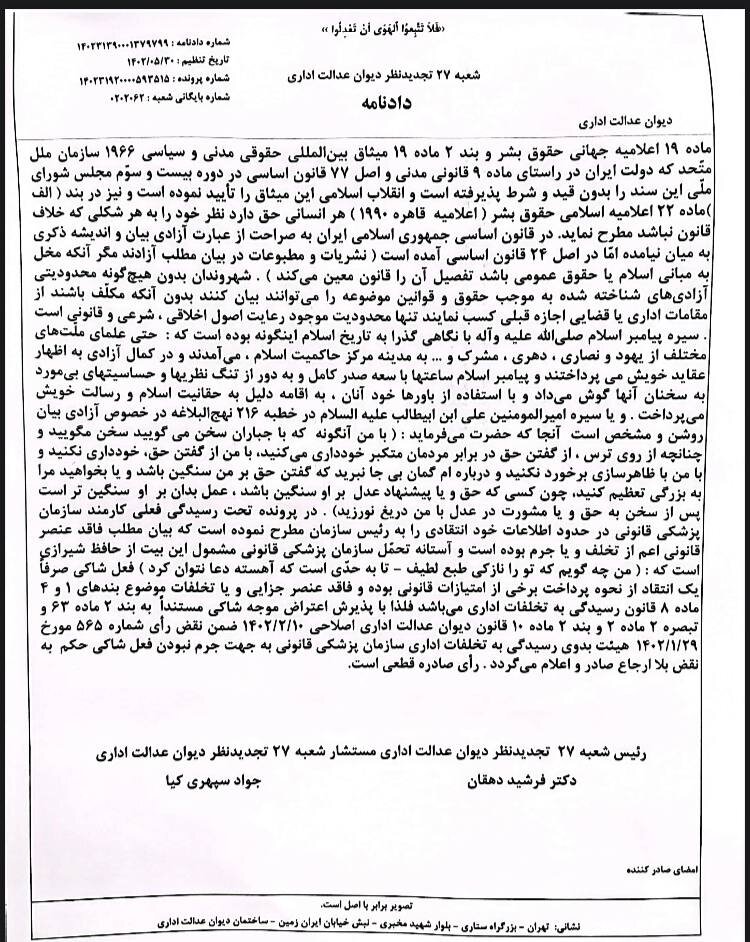 «فَلاَ تَتَّبِعوُا اَلهَوَی اَنْ تَعْدِلُوا »
شماره دادنامه : ۱۴۰۲۳۱۳۹۰۰۰۱۳۷۹۷۹۹
تاریخ تنظیم : ۱۴۰۲/۰۵/۳۰
شماره پرونده : ۱۴۰۲۳۱۹۲۰۰۰۰۵۹۳۵۱۵
شماره بایگانی شعبه : ۰۲۰۲۰۶۲
شعبه ۲۷ تجدیدنظر دیوان عدالت اداری
دادنامه
دیوان عدالت اداری
ماده ۱۹ اعلامیه جهانی حقوق بشر و بند ۲ ماده ۱۹ میثاق بین‌المللی حقوقی مدنی و سیاسی ۱۹۶۶ سازمان ملل
متّحد که دولت ایران در راستای ماده ۹ قانونی مدنی و اصل ۷۷ قانون اساسی در دوره بیست و سوّم مجلس شورای
ملّی این سند را بدون قید و شرط پذیرفته است و انقلاب اسلامی این میثاق را تأیید نموده است و نیز در بند ( الف
)ماده ۲۲ اعلامیه اسلامی حقوق بشر ( اعلامیه قاهره ۱۹۹۰ ) هر انسانی حق دارد نظر خود را به هر شکلی که خلاف
قانون نباشد مطرح نماید. در قانون اساسی جمهوری اسلامی ایران به صراحت از عبارت آزادی بیان و اندیشه ذکری
به میان نیامده امّا در اصل ۲۴ قانون اساسی آمده است ( نشریات و مطبوعات در بیان مطلب آزادند مگر آنکه مخل
به مبانی اسلام یا حقوق عمومی باشد تفصیل آن را قانون معین می‌کند ) . شهروندان بدون هیچ‌گونه محدودیتی
آزادی‌های شناخته شده به موجب حقوق و قوانین موضوعه را می‌توانند بیان کنند بدون آنکه مکلّف باشند از
مقامات اداری یا قضایی اجازه قبلی کسب نمایند تنها محدودیت موجود رعایت اصول اخلاقی ، شرعی و قانونی است
. سیره پیامبر اسلام صلی‌الله علیه وآله با نگاهی گذرا به تاریخ اسلام اینگونه بوده است که : حتی علمای ملّت‌های
مختلف از یهود و نصاری ، دهری ، مشرک و ... به مدینه مرکز حاکمیت اسلام ، می‌آمدند و در کمال آزادی به اظهار
عقاید خویش می پرداختند و پیامبر اسلام ساعتها با سعه صدر کامل و به دور از تنگ نظریها و حساسیتهای بی‌مورد
به سخنان آنها گوش می‌داد و با استفاده از باورها خود آنان ، به اقامه دلیل به حقانیت اسلام و رسالت خویش
می‌پرداخت . و یا سیره امیرالمومنین علی ابن ابیطالب علیه السلام در خطبه ۲۱۶ نهج‌البلاغه در خصوص آزادی بیان
روشن و مشخص است آنجا که حضرت می‌فرماید : ( با من آنگونه که با جباران سخن می گویید سخن مگویید و
چنانچه از روی ترس ، از گفتن حق در برابر مردمان متکبر خودداری می‌کنید، با من از گفتن حق، خودداری نکنید و
با من با ظاهرسازی برخورد نکنید و درباره ام گمان بی جا نبرید که گفتن حق بر من سنگین باشد و یا بخواهید مرا
به بزرگی تعظیم کنید، چون کسی که حق و یا پیشنهاد عدل بر او سنگین باشد ، عمل بدان بر او سنگین تر است
پس از سخن به حق و یا مشورت در عدل با من دریغ نورزید) . در پرونده تحت رسیدگی فعلی کارمند سازمان
پزشکی قانونی در حدود اطلاعات خود انتقادی را به رئیس سازمان مطرح نموده است که بیان مطلب فاقد عنصر
قانونی اعم از تخلف و یا جرم بوده است و آستانه تحمّل سازمان پزشکی قانونی مشمول این بیت از حافظ شیرازی
است که : ( من چه گویم که تو را نازکی طبع لطیف - تا به حدّی است که آهسته دعا نتوان کرد ) فعل شاکی صرفاً
یک انتقاد از نحوه پرداخت برخی از امتیازات قانونی بوده و فاقد عنصر جزایی و یا تخلفات موضوع بندهای ۱ و ۴
ماده ۸ قانون رسیدگی به تخلفات اداری می‌باشد فلذا با پذیرش اعتراض موجه شاکی مستنداً به بند ۲ ماده ۶۳ و
تبصره ۲ ماده ۲ و بند ۲ ماده ۱۰ قانون دیوان عدالت اداری اصلاحی ۱۴۰۲/۲/۱۰ ضمن نقض رأی شماره ۵۶۵ مورخ
۱۴۰۲/۱/۲۹ هیئت بدوی رسیدگی به تخلفات اداری سازمان پزشکی قانونی به جهت جرم نبودن فعل شاکی حکم به
نقض بلا ارجاع صادر و اعلام می‌گردد . رأی صادره قطعی است.
رئیس شعبه ۲۷ تجدیدنظر دیوان عدالت اداری مستشار شعبه ۲۷ تجدیدنظر دیوان عدالت اداری
دکتر فرشید دهقان جواد سپهری کیا
امضای صادر کننده
تصویر برابر با اصل است.
نشانی: تهران - بزرگراه ستاری - بلوار شهید مخبری - نبش خیابان ایران زمین - ساختمان دیوان عدالت اداری